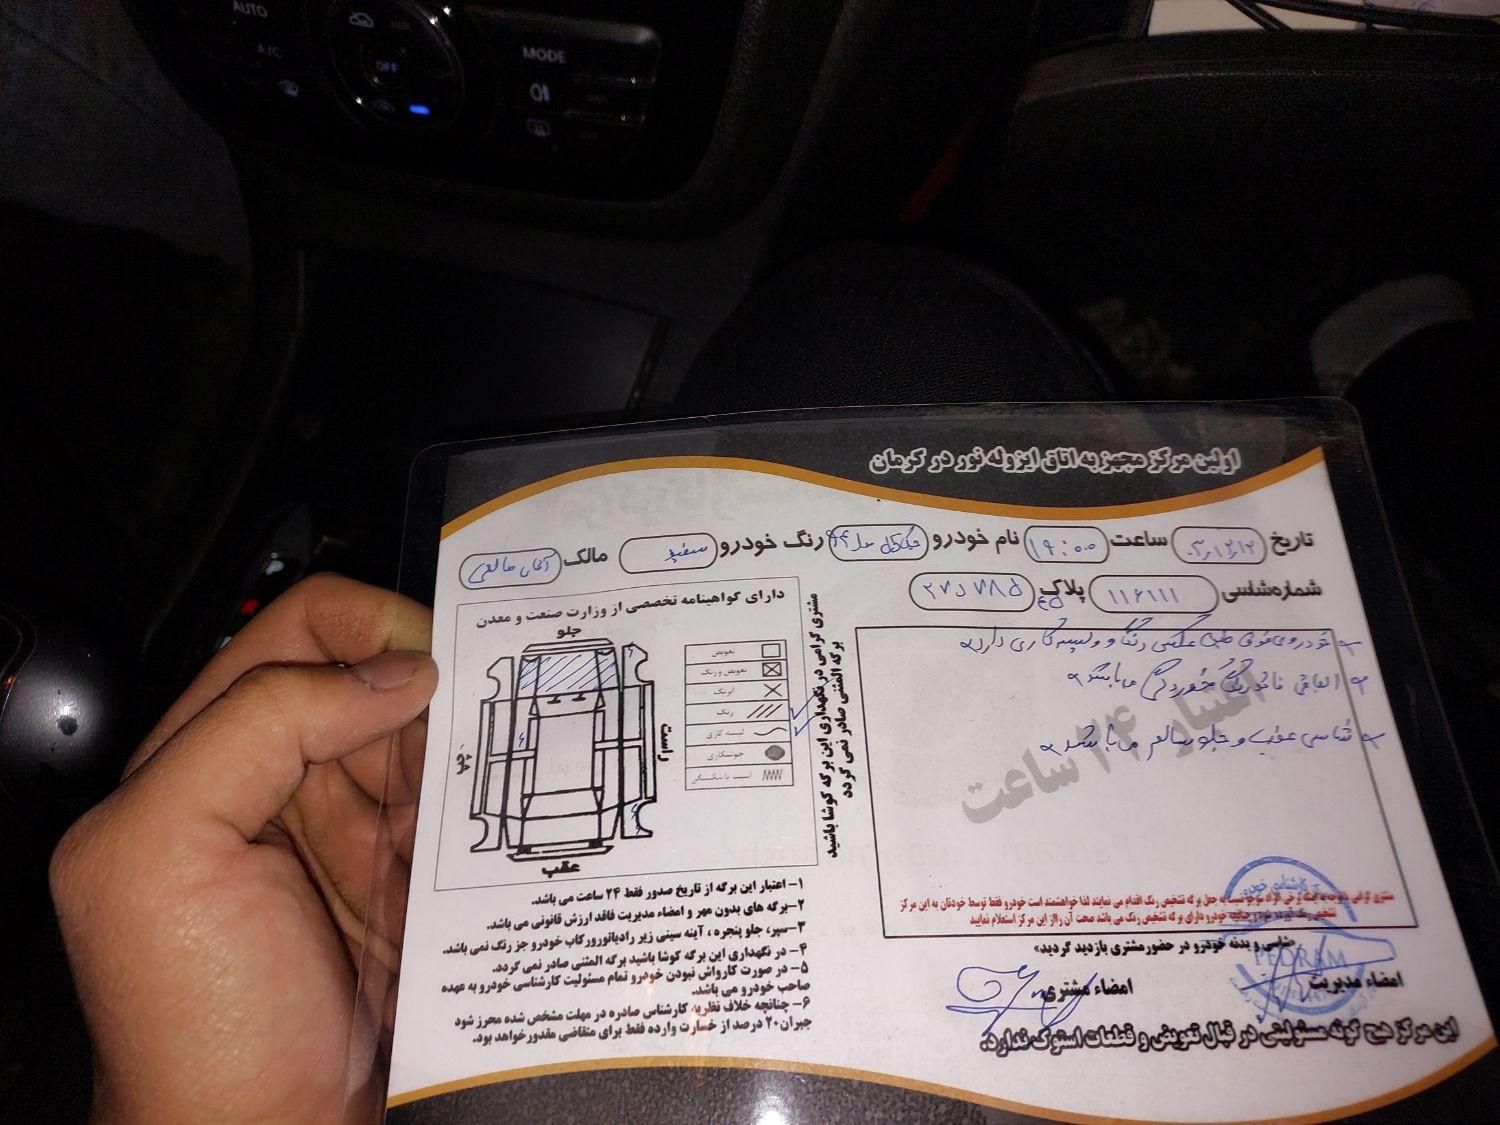 AUTO
A/C
OFF
MODE
اولین مرکز مجهز به اتاق ایزوله نور در کرمان
تاریخ ۰۳/۱۲/۱۲ ساعت ۱۹:۰۰ نام خودرو رنگ خودرو سفید مالک آقای
شماره شاسی ۱۱۶۱۱۱ پلاک
دارای گواهینامه تخصصی از وزارت صنعت و معدن
جلو
راست
چپ
عقب
تعویض
تعویض و رنگ
ابرنگ
رنگ
لیسه کاری
جوشکاری
آسیب یا شکستگی
مشتری گرامی در نگهداری این برگه کوشا باشید
برگه المثنی صادر نمی گردد
خودروی فوق طبق عکس رنگ و لیسه کاری دارد
الباقی فاقد رنگ خوردگی می باشد
شاسی عقب و جلو سالم می باشد
اعتبار ۲۴ ساعت
تشخیص رنگ گیرند. ضمنا چنانچه خودرو دارای برگه تشخیص رنگ می باشد صحت آن را از این مرکز استعلام نمایید
شاسی و بدنه خودرو در حضور مشتری بازدید گردید»
امضاء مدیریت
امضاء مشتری
PEDRAM
۱- اعتبار این برگه از تاریخ صدور فقط ۲۴ ساعت می باشد.
۲- برگه های بدون مهر و امضاء مدیریت فاقد ارزش قانونی می باشد.
۳- سپر، جلو پنجره ، آینه سینی زیر رادیاتور ورکاب خودرو جز رنگ نمی باشد.
۴- در نگهداری این برگه کوشا باشید برگه المثنی صادر نمی گردد.
۵- در صورت کارواش نبودن خودرو تمام مسئولیت کارشناسی خودرو به عهده
صاحب خودرو می باشد.
۶- چنانچه خلاف نظریه کارشناس صادره در مهلت مشخص شده محرز شود
جبران ۲۰ درصد از خسارت وارده فقط برای متقاضی مقدور خواهد بود.
این مرکز هیچ گونه مسئولیتی در قبال تعویض و قطعات استوک ندارد.